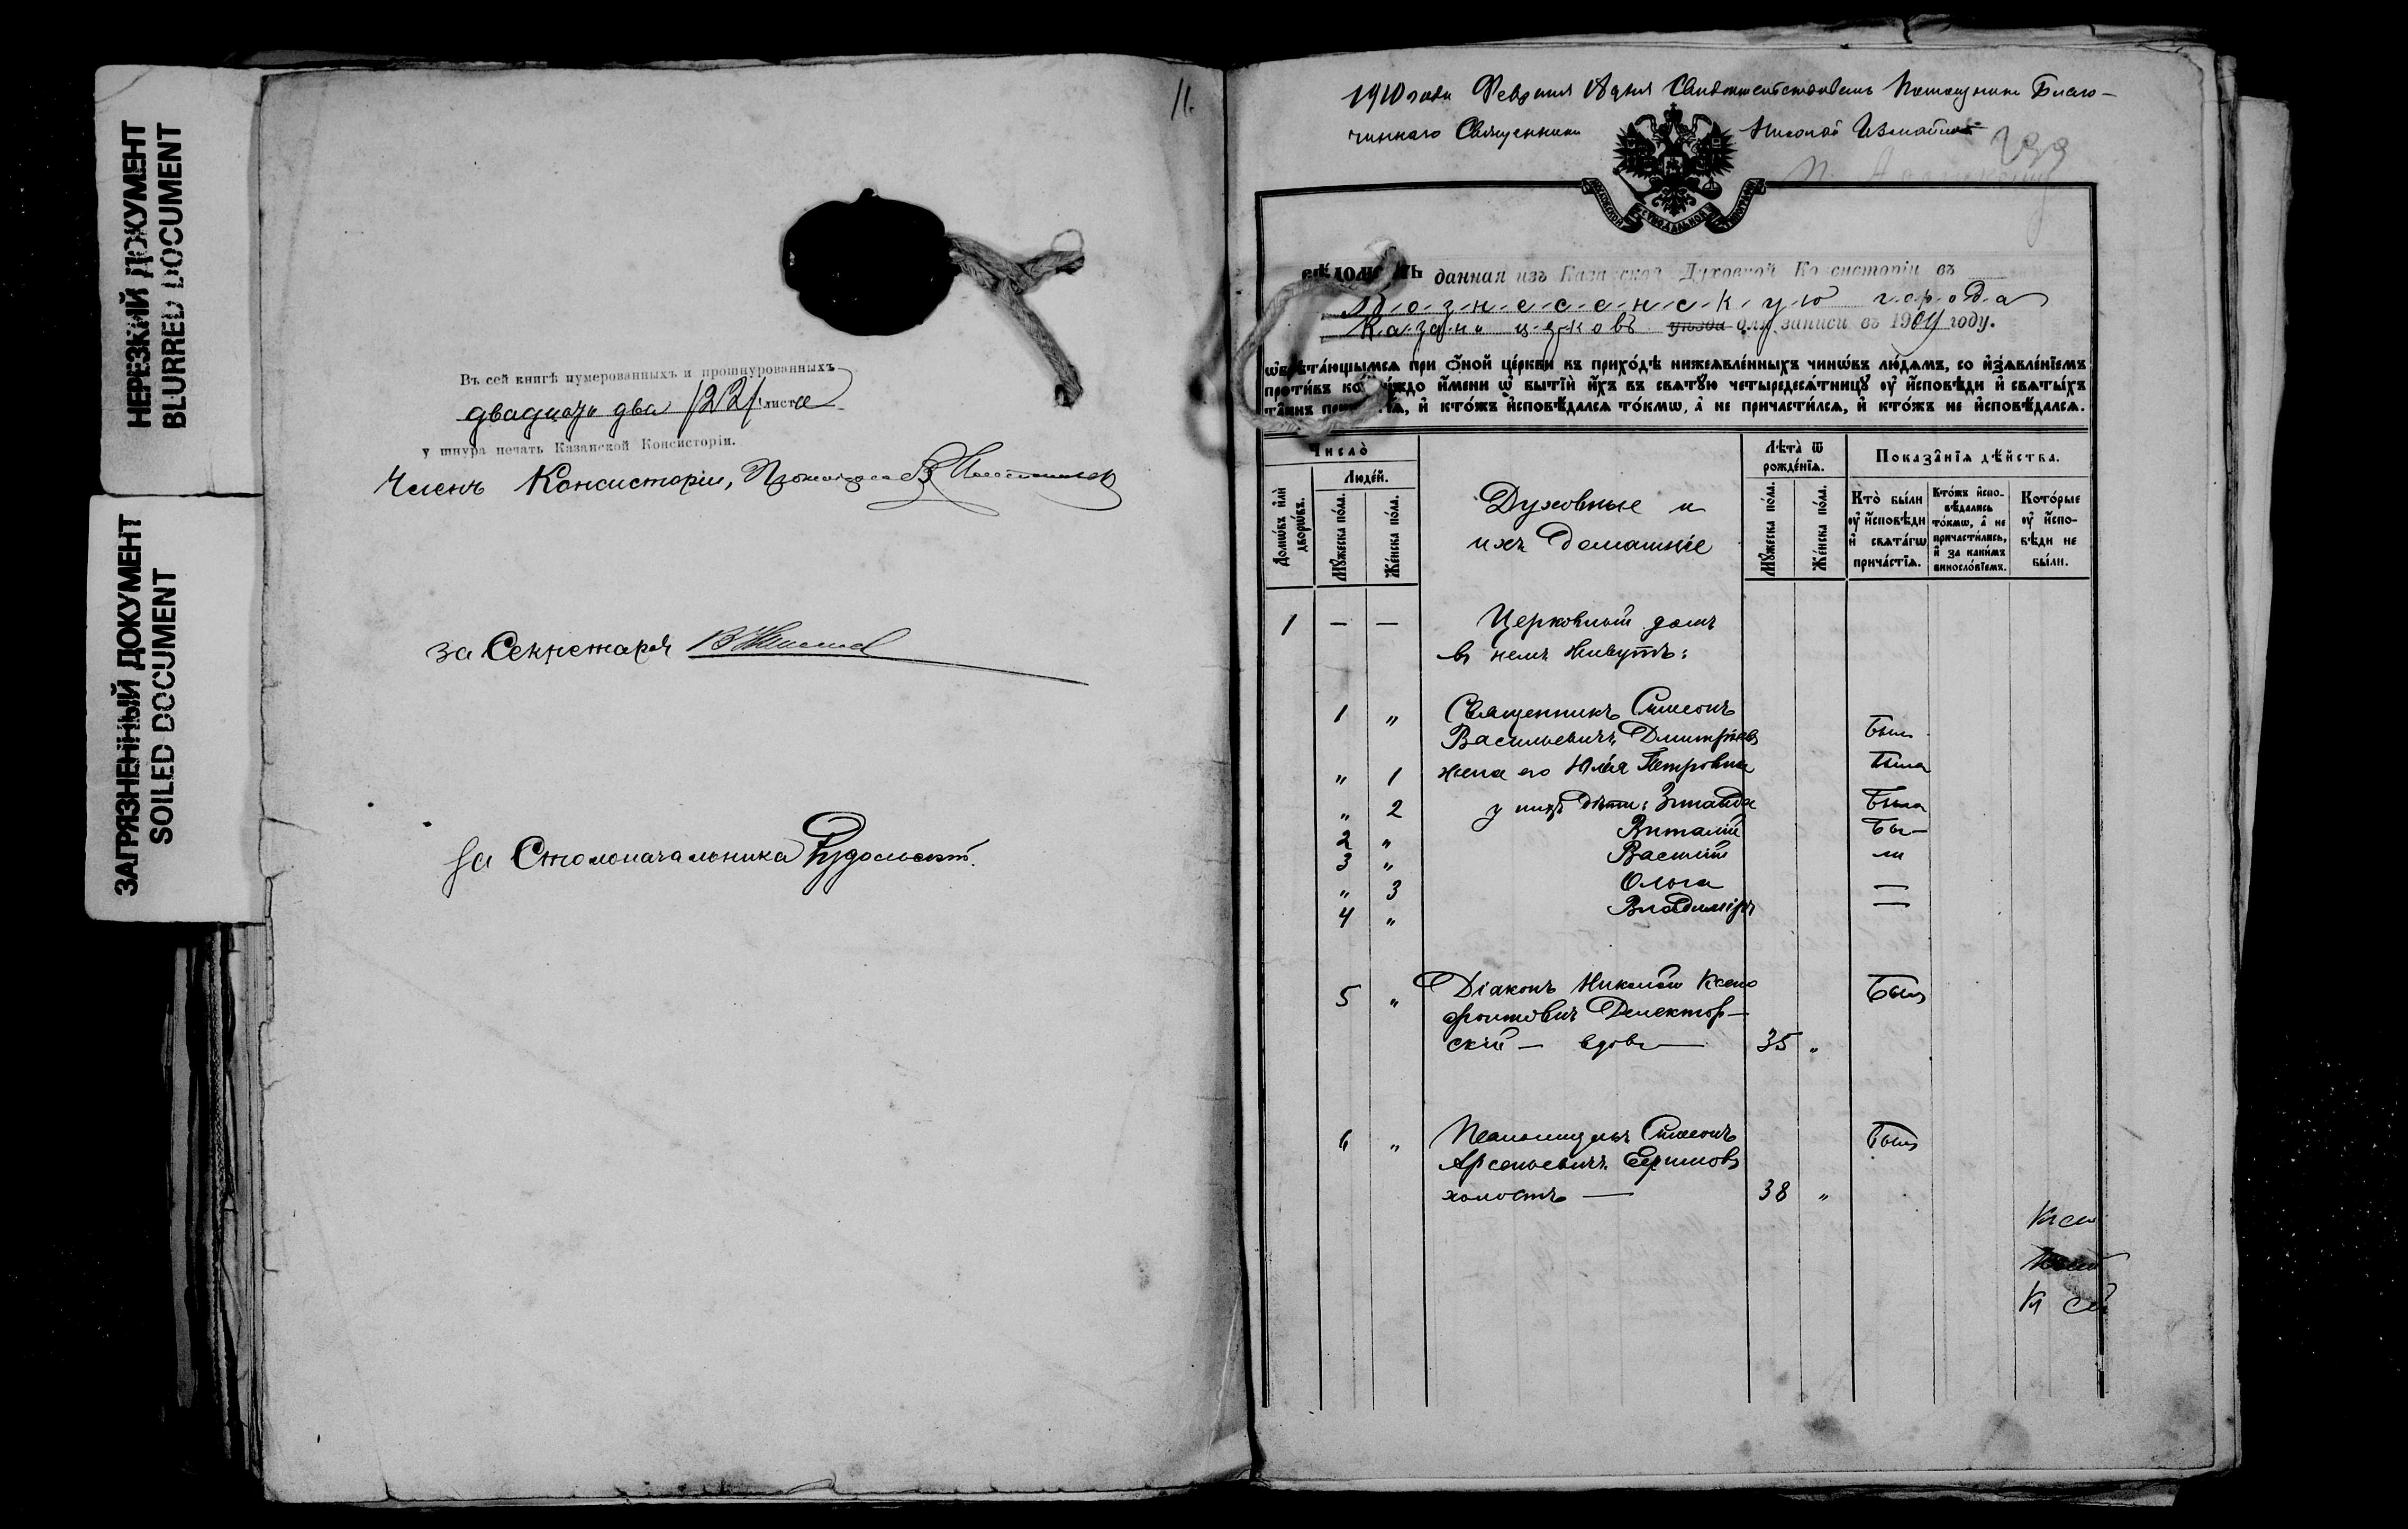 НЕРЕЗКИЙ ДОКУМЕНТ
BLURRED DOCUMENT
ЗАГРЯЗНЕННЫЙ ДОКУМЕНТ
SOILED DOCUMENT
11.
Въ сей книгѣ нумерованныхъ и прошнурованныхъ
двадцать два /22/ листа
у шнура печать Казанской Консисторіи.
Членъ Консисторіи, Протоіерей
за Секретаря
За Столоначальника
1910 года Февраля 18 дня Свидѣтельствовалъ Помощникъ Благо-
чиннаго Священникъ Николай Измайловъ
МОСКОВСКОЙ СѴНОДАЛЬНОЙ ТИПОГРАФІИ
данная изъ Казанской Духовной Консисторіи въ
Вознесенскую города
Казани церковь уѣзда для записи въ 1909 году.
ѡбрѣта́ющымсѧ при ѻ҆́ной це́ркви въ прихо́дѣ нижеѧвле́нныхъ чинѡ́въ лю́дѧмъ, со и҆з̾ѧвле́нїемъ
проти́въ ко́еѧждо и҆́мени ѡ҆ бытїѝ и҆́хъ въ свѧту́ю четыредесѧ́тницу ᲂу҆ и҆́сповѣди и҆ свѧты́хъ
та̑инъ прича́стїѧ, и҆ кто́жъ и҆сповѣ́далсѧ то́кмѡ, а҆ не причасти́лсѧ, и҆ кто́жъ не и҆сповѣ́далсѧ.
Число̀
Люде́й.
Домѡ́въ и҆лѝ дворѡ́въ.
Мꙋ́жеска по́ла.
Же́нска по́ла.
Духовные и
ихъ домашніе
Лѣта̀ ѿ рожде́нїѧ.
Мꙋ́жеска по́ла.
Же́нска по́ла.
Показа̑нїѧ дѣ́йства.
Кто̀ бы́ли ᲂу҆ и҆́сповѣди и҆ свѧта́гѡ прича́стїѧ.
Кто́жъ и҆спо-вѣ́дались то́кмѡ, а҆ не причасти́лись, и҆ за каки́мъ виносло́вїемъ.
Кото́рые ᲂу҆ и҆́спо-вѣди не бы́ли.
1 — — Церковный домъ
въ немъ живутъ:
1 „ Священникъ Симеонъ
Васильевичъ Дмитріевъ Былъ
„ 1 жена его Юлія Петровна Была
„ 2 у нихъ дѣти: Зинаида Была
2 „ Виталій Бы-
3 „ Василій ли
„ 3 Ольга —
4 „ Владиміръ —
5 „ Діаконъ Николай Ксено
фонтовичъ Делектор-
скій — вдовъ — 35 „ Былъ
6 „ Псаломщикъ Симеонъ
Арсеньевичъ Ефимовъ Былъ
холостъ — 38 „
Къ сей
Къ сей